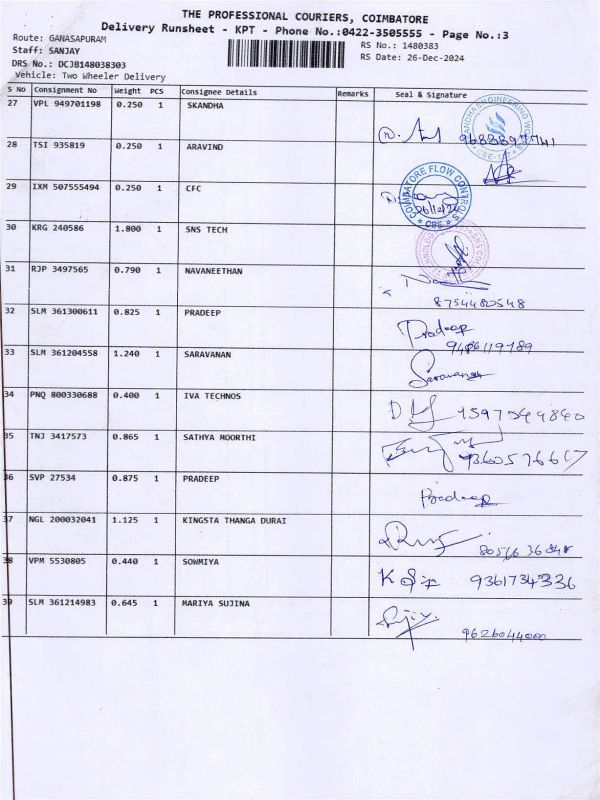 THE PROFESSIONAL COURIERS, COIMBATORE
Delivery Runsheet - KPT - Phone No.:0422-3505555 - Page No.:3
Route: GANASAPURAM
RS No.: 1480383
Staff: SANJAY
RS Date: 26-Dec-2024
DRS No.: DCJB148038303
Vehicle: Two Wheeler Delivery
S No Consignment No Weight PCS Consignee Details Remarks Seal & Signature
27 VPL 949701198 0.250 1 SKANDHA
28 TSI 935819 0.250 1 ARAVIND
29 IXM 507555494 0.250 1 CFC
COIMBATORE FLOW CONTROLS
CBE
30 KRG 240586 1.800 1 SNS TECH
31 RJP 3497565 0.790 1 NAVANEETHAN
8754480548
32 SLM 361300611 0.825 1 PRADEEP
Pradeep
9486119789
33 SLM 361204558 1.240 1 SARAVANAN
Saravanan
34 PNQ 800330688 0.400 1 IVA TECHNOS
35 TNJ 3417573 0.865 1 SATHYA MOORTHI
9360576667
36 SVP 27534 0.875 1 PRADEEP
Pradeep
37 NGL 200032041 1.125 1 KINGSTA THANGA DURAI
38 VPM 5530805 0.440 1 SOWMIYA
9361734336
39 SLM 361214983 0.645 1 MARIYA SUJINA
9626044000